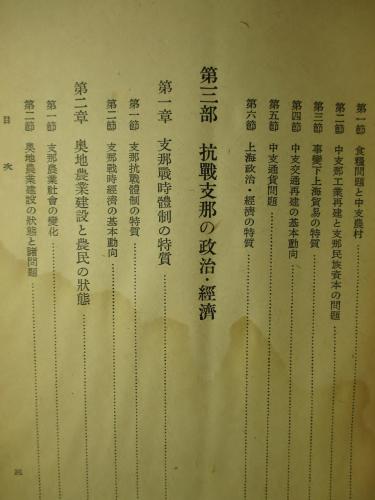 第一節 食糧問題と中支農村
第二節 中支那工業再建と支那民族資本の問題
第三節 事變下上海貿易の特質
第四節 中支交通再建の基本動向
第五節 中支通貨問題
第六節 上海政治・經濟の特質
第三部 抗戰支那の政治・經濟
第一章 支那戰時體制の特質
第一節 支那抗戰體制の特質
第二節 支那戰時經濟の基本動向
第二章 奥地農業建設と農民の狀態
第一節 支那農業社會の變化
第二節 奥地農業建設の狀態と諸問題
目次